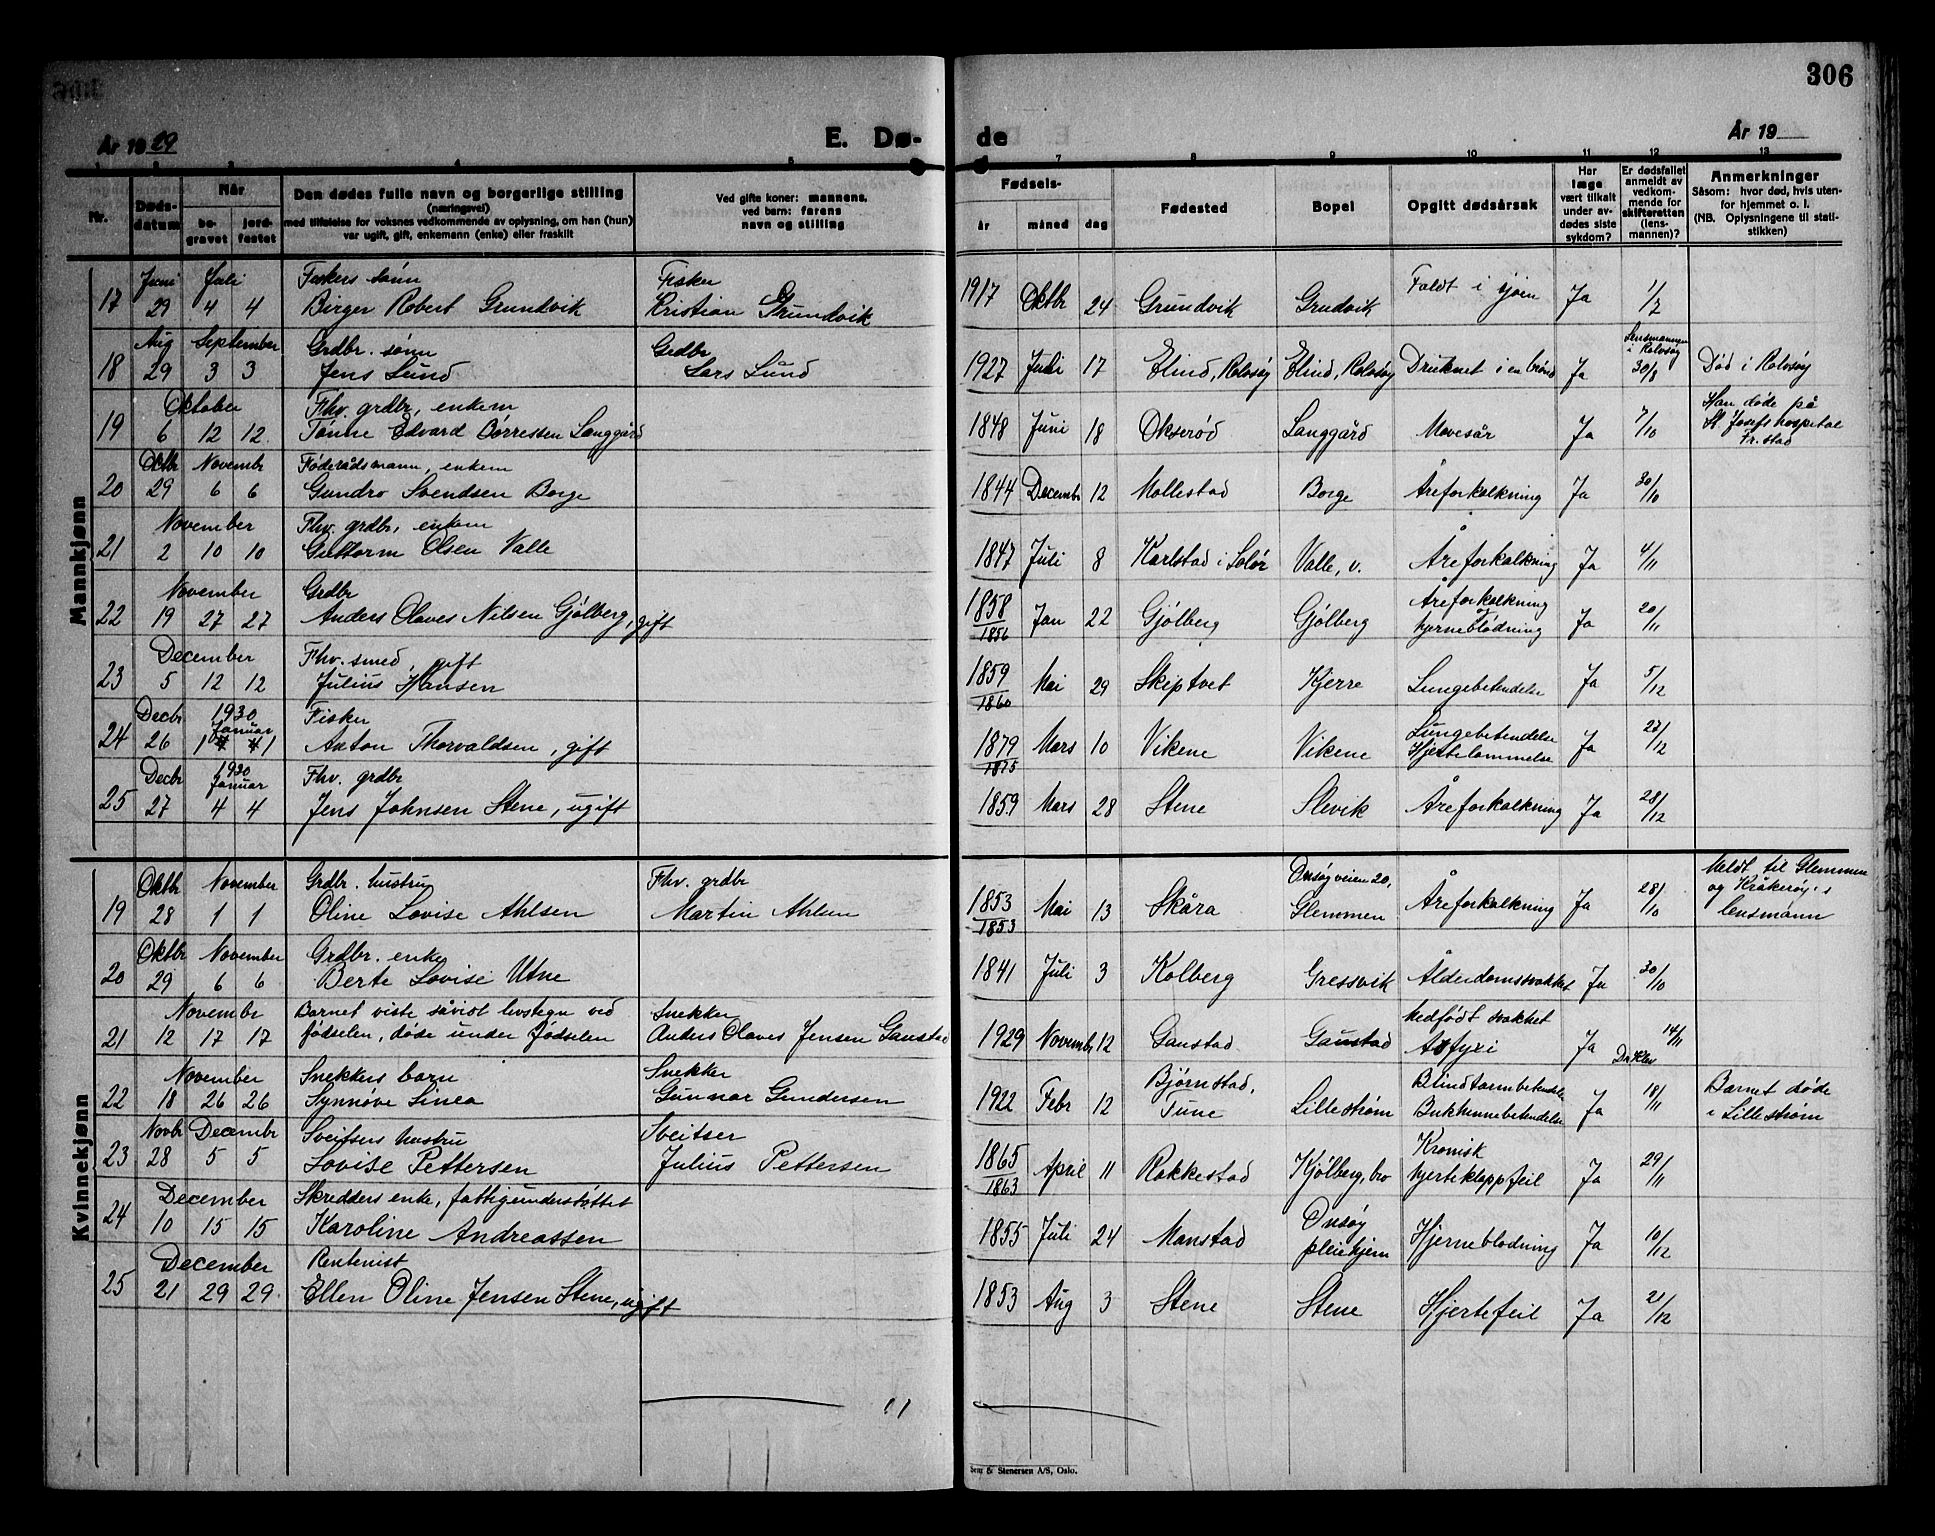 306
År 1929
E. Dø-
de
År 19
1 2 3 4 5
7 8 9 10 11 12 13
Nr.
Døds-
datum
Når
be-
gravet
jord-
festet
Den dødes fulle navn og borgerlige stilling
(næringsvei)
med tilføielse for voksnes vedkommende av oplysning, om han (hun)
var ugift, gift, enkemann (enke) eller fraskilt
Ved gifte koner: mannens,
ved barn: farens
navn og stilling
Fødsels-
år måned dag
Fødested
Bopel
Opgitt dødsårsak
Har
læge
vært tilkalt
under av-
dødes siste
sykdom?
Er dødsfallet
anmeldt av
vedkom-
mende for
skifteretten
(lens-
mannen)?
Anmerkninger
Såsom: hvor død, hvis uten-
for hjemmet o. l.
(NB. Oplysningene til stati-
stikken)
Mannkjønn
Juni Juli Fiskers sønn Fisker
17 29 4 4 Birger Robert Grundvik Kristian Grundvik 1917 Oktbr 24 Grundvik Grudvik Faldt i sjøen Ja 1/7
Aug September Grdbr. sønn Grdbr Lensmannen i Rolvsøy
18 29 3 3 Jens Lund Lars Lund 1927 Juli 17 Elind, Rolvsøy Elind, Rolvsøy Druknet i en brønd Ja 30/8 Død i Rolvsøy
Oktober Fhv. grdbr, enkem Han døde på
19 6 12 12. Tønne Edvard Børressen Langgård 1848 Juni 18 Okserød Langgård Ja 7/10 St. Josefs hospital
Fr.stad
Oktbr November Føderådsmann, enkem
20 29 6 6 Gundro Svendsen Borge 1844 Decembr 12 Mollestad Borge Åreforkalkning Ja 30/10
November Fhv. grdbr, enkem
21 2 10 10 Guttorm Olsen Valle 1847 Juli 8 Karlstad i Solør Valle, v. Åreforkalkning Ja 4/11
November Grdbr 1858 Åreforkalkning
22 19 27 27 Anders Olaves Nilsen Gjølberg, gift 1856 Jan 22 Gjølberg Gjølberg hjerneblødning Ja 20/11
December Fhv. smed, gift 1859
23 5 12 12 Julius Hansen 1860 Mai 29 Skiptvet Kjerre Lungebetendelse Ja 5/12
Decbr 1930 Januar Fisker 1879 Lungebetendelse
24 26 1 1 Anton Thorvaldsen, gift 1875 Mars 10 Vikene Vikene Hjertelammelse Ja 27/12
Decbr 1930 Januar Fhv. grdbr
25 27 4 4 Jens Johnsen Stene, ugift 1859 Mars 28 Stene Slevik Åreforkalkning Ja 28/12
Kvinnekjønn
Oktbr November Grdbr. hustru Fhv. grdbr 1853 Onsøyveien 20, Meldt til Glemmen
19 28 1 1 Oline Lovise Ahlsen Martin Ahlsen 1853 Mai 13 Skåra Glemmen Åreforkalkning Ja 28/10 og Kråkerøy's
lensmann
Oktbr November Grdbr. enke
20 29 6 6 Berte Lovise Utne 1841 Juli 3 Kolberg Gressvik Alderdomssvakhet Ja 30/10
November Barnet viste såvidt livstegn ved Snekker Medfødt svakhet
21 12 17 17 fødselen, døde under fødselen Anders Olaves Jensen Gaustad 1929 Novembr 12 Gaustad Gaustad Asfyxi Ja 14/11
November Snekkers barn Snekker Bjørnstad, Blindtarmbetendelse
22 18 26 26 Synnøve Linea Gunnar Gundersen 1922 Febr 12 Tune Lillestrøm Bukhinnebetendelse Ja 18/11 Barnet døde
i Lillestrøm
Novbr Decembr Sveitsers hustru Sveitser 1865 Kronisk
23 28 5 5 Lovise Pettersen Julius Pettersen 1863 April 11 Rakkestad Kjølberg, bro hjerteklappfeil Ja 29/11
December Skredders enke, fattigunderstøttet Onsøy
24 10 15 15 Karoline Andreassen 1855 Juli 24 Manstad pleiehjem Hjerneblødning Ja 10/12
December Rentenist
25 21 29 29. Ellen Oline Jensen Stene, ugift 1853 Aug 3 Stene Stene Hjertefeil Ja 21/12
Sem & Stenersen A/S, Oslo.